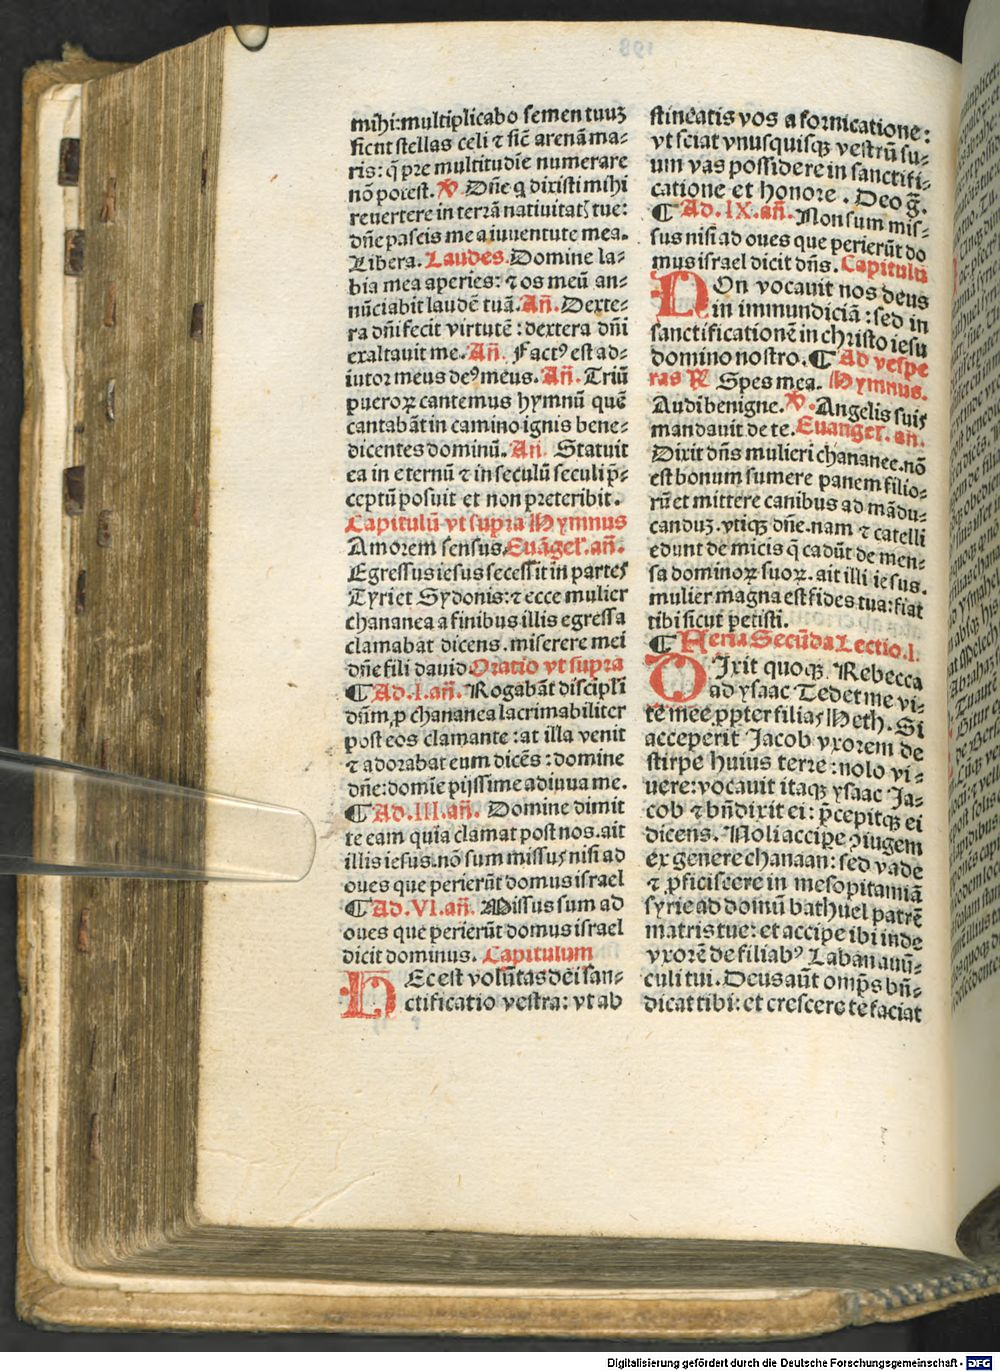 mihi:multiplicabo semen tuuꝫ
sicut stellas celi ⁊ sic̄ arenā ma⸗
ris: q̄ pre multitudīe numerare
nō potest. ℣. Dn̄e q dixisti mihi
reuertere in terrā natiuitatꝭ tue:
dn̄e pascis me a iuuentute mea.
Libera. Laudes. Domine la⸗
bia mea aperies: ⁊ os meū an⸗
nūciabit laudē tuā. An̄. Dexte⸗
ra dn̄i fecit virtutē : dextera dn̄i
exaltauit me. An̄. Factꝰ est ad⸗
iutor meus deꝰ meus. An̄. Triū
pueroꝝ cantemus hymnū quē
cantabāt in camino ignis bene⸗
dicentes dominū. An̄. Statuit
ea in eternū ⁊ in seculū seculi p̄⸗
ceptū posuit et non preteribit.
Capitulū vt supra Hymnus
Amorem sensus. Euāgeł. an̄.
Egressus iesus secessit in partes
Tyri et Sydonis: ⁊ ecce mulier
chananea a finibus illis egressa
clamabat dicens. miserere mei
dn̄e fili dauid. Oratio vt supra
¶ Ad. I. an̄. Rogabāt discipli
dūm, ꝓ chananea lacrimabiliter
post eos clamante : at illa venit
⁊ adorabat eum dicēs : domine
dn̄e: domīe pijssime adiuua me.
¶ Ad. III. an̄. Domine dimit
te eam quia clamat post nos. ait
illis iesus. nō sum missus nisi ad
oues que perierūt domus israel
¶ Ad. VI. an̄. Missus sum ad
oues que perierūt domus israel
dicit dominus. Capitulum
HEc est volūtas dei san⸗
ctificatio vestra: vt ab
stineatis vos a fornicatione :
vt sciat vnusquisqꝫ vestrū su⸗
um vas possidere in sanctifi⸗
catione et honore . Deo ḡ.
¶ Ad. IX. an̄. Non sum mis⸗
sus nisi ad oues que perierūt do
mus israel dicit dn̄s. Capitulū
NOn vocauit nos deus
in immundiciā : sed in
sanctificationē in christo iesu
domino nostro. ¶ Ad vespe
ras ℟ Spes mea. Hymnus.
Audi benigne. ℣. Angelis suis
mandauit de te. Euangeł. an̄.
Dixit dn̄s mulieri chananee. nō
est bonum sumere panem filio⸗
rū et mittere canibus ad mādu⸗
canduꝫ. vtiqꝫ dn̄e. nam ⁊ catelli
edunt de micis q̄ cadūt de men⸗
sa dominoꝝ suoꝝ. ait illi iesus.
mulier magna est fides tua: fiat
tibi sicut petisti.
¶ Feria Secūda Lectio. I.
DIxit quoqꝫ Rebecca
ad ysaac Tedet me vi⸗
te mee ꝓpter filias Heth. Si
acceperit Jacob vxorem de
stirpe huius terre : nolo vi⸗
uere: vocauit itaqꝫ ysaac Ja⸗
cob ⁊ bn̄dixit ei : p̄cepitqꝫ ei
dicens. Noli accipe ꝯiugem
ex genere chanaan : sed vade
⁊ ꝓficiscere in mesopitamiā
syrie ad domū bathuel patrē
matris tue: et accipe ibi inde
vxorē de filiabꝰ Laban auū⸗
culi tui. Deus aūt omp̄s bn̄⸗
dicat tibi: et crescere te faciat
Digitalisierung gefördert durch die Deutsche Forschungsgemeinschaft - DFG